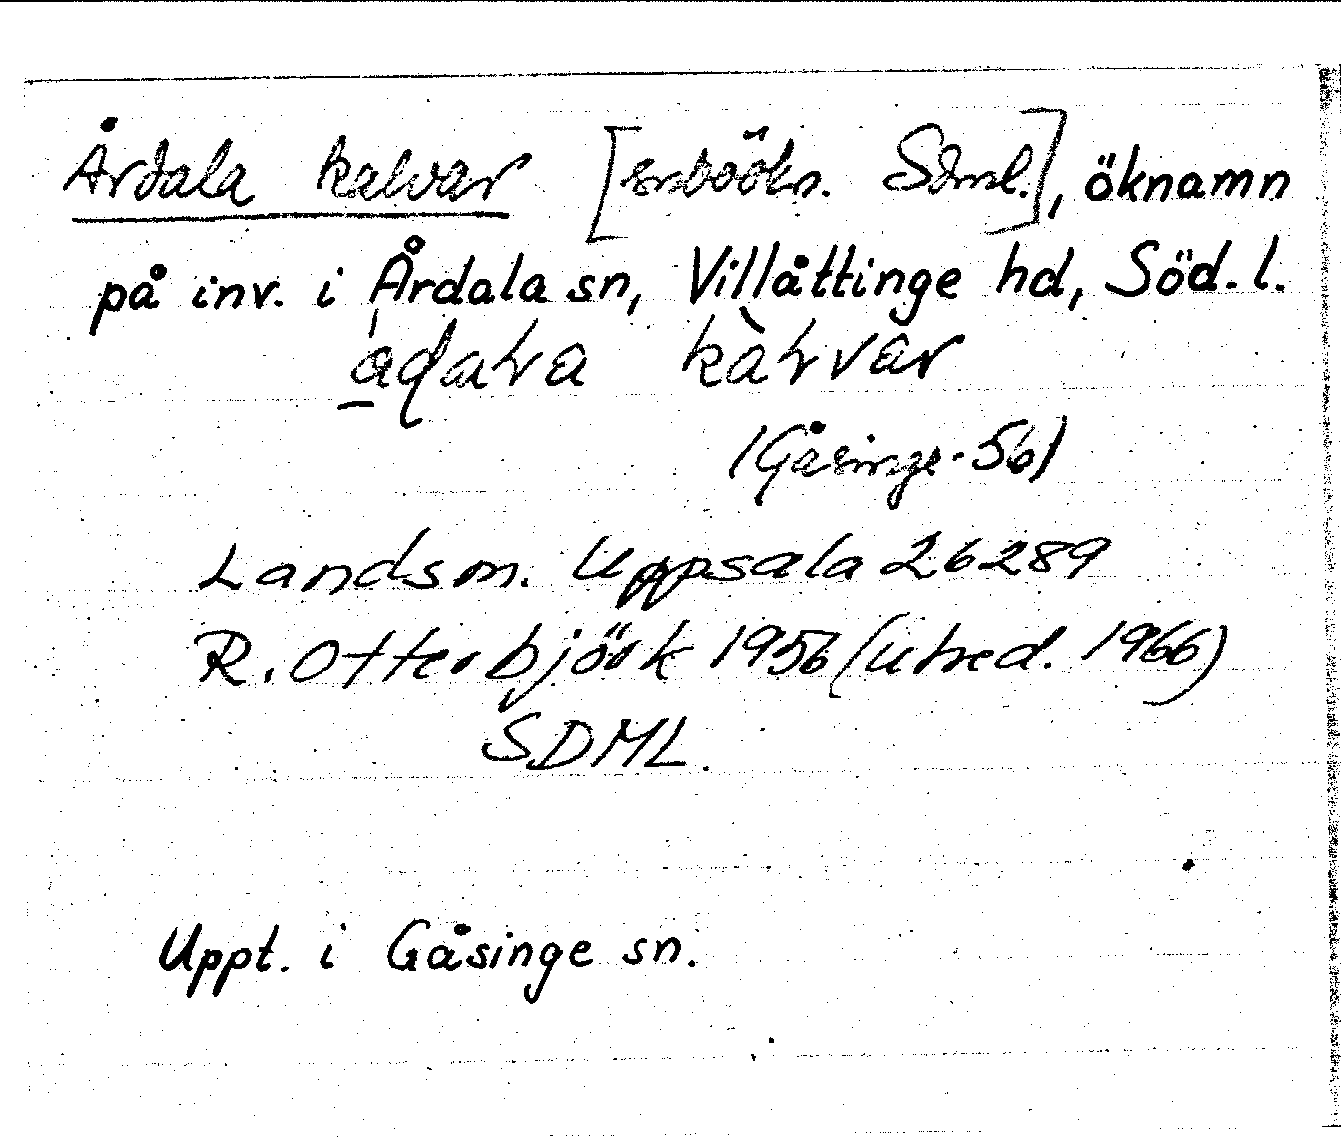 Årdala kalvar [snböökn. Sdml.], öknamn
på inv. i Årdala sn, Villåttinge hd, Söd. l.
kàɫvar
(Gåsinge - 56)
Landsm. Uppsala 26289
R. Otterbjörk 1956 (utred. 1966)
SDML.
Uppt. i Gåsinge sn.